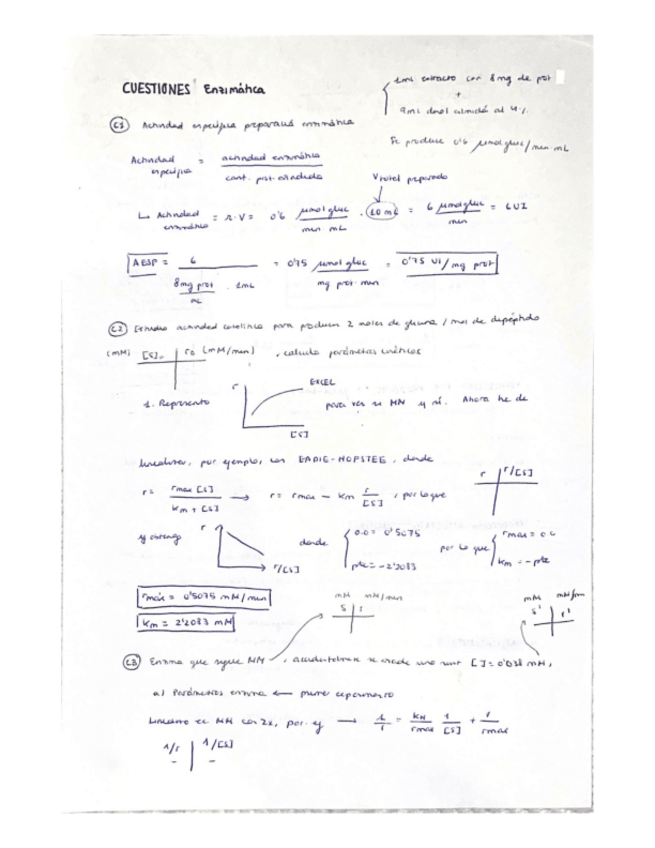 CUESTIONES Enzimática
1mL extracto con 8mg de prot
+
9mL disol almidón al 4%
Se produce 0'6 µmol gluc/min·mL
C1 Actividad específica preparado enzimático
Actividad específica = actividad enzimática / cant. prot. añadida
V total preparado
↳ Actividad enzimática = r·V = 0'6 µmol gluc / min mL · 10 mL = 6 µmol gluc / min = 6 UI
AESP = 6 / 8mg prot / mL · 1mL = 0'75 µmol gluc / mg prot·min = 0'75 UI/mg prot
C2 Estudio actividad catalítica para producir 2 moles de glicina / mol de dipéptido
(mM) [S]o | ro (mM/min) , calcula parámetros cinéticos
1. Represento r [S] EXCEL para ver si MM y sí. Ahora he de
linealizar, por ejemplo, con EADIE-HOFSTEE, donde
r = rmax [S] / Km + [S] → r = rmax - Km r / [S] , por lo que r | r/[S]
y obtengo r r/[S] donde { o.o = 0'5075 pte = -2'2083 por lo que { rmax = o.o Km = -pte
rmáx = 0'5075 mM/min
Km = 2'2083 mM
mM mM/min
S | r
mM mM/min
S' | r'
C3 Enzima que sigue MM, accidentalmente se añade una [ ] = mM,
a) Parámetros enzima ← primer experimento
Linealizo ec MM con 2x, por ej → 1/r = KM/rmax 1/[S] + 1/rmax
1/r | 1/[S]
- | -